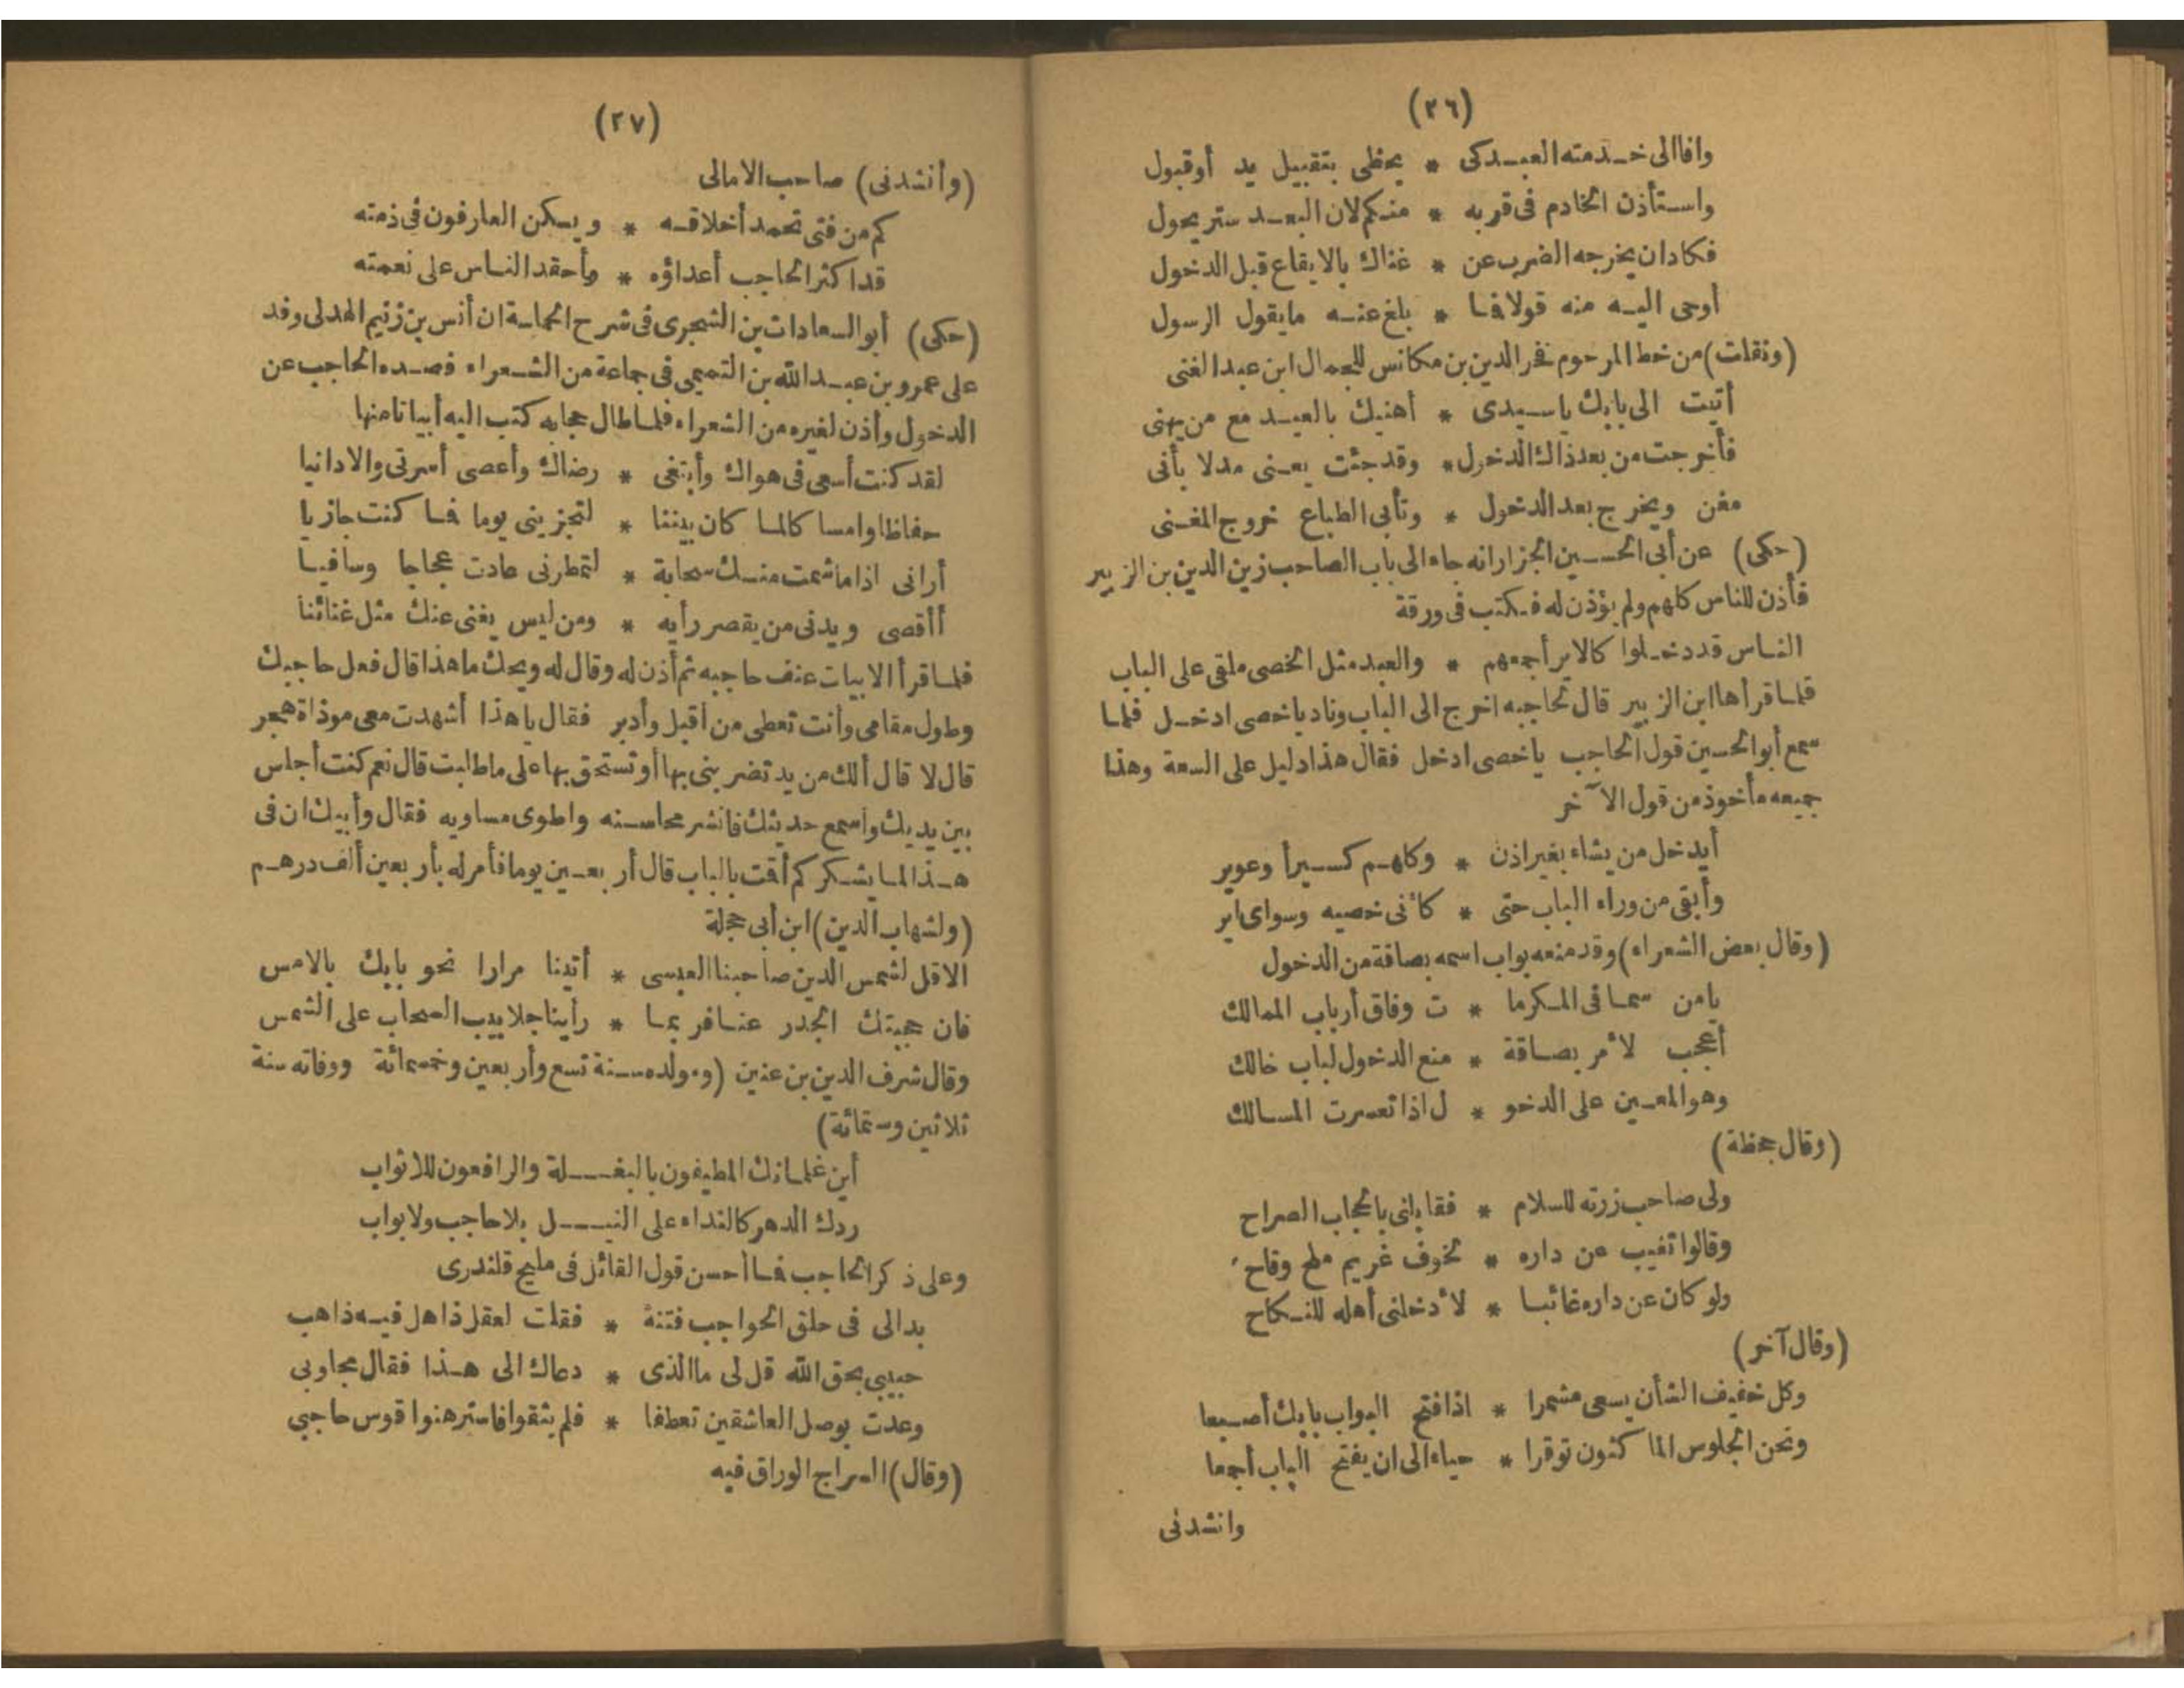 (٢٦)
وافا الى خدمته العبد كى * يحظى بتقبيل يد أو قبول
واستأذن الخادم فى قربه * منكم لان البعد ستر يحول
فكاد ان يخرجه الضرب عن * غناك بالايقاع قبل الدخول
أوحى اليه منه قولا فما * بلغ عنه ما يقول الرسول
(ونقلت) من خط المرحوم فخر الدين بن مكانس للجمال ابن عبد الغنى
أتيت الى بابك ياسيدى * أهنيك بالعيد مع من يهنى
فأخرجت من بعد ذاك الدخول * وقد جئت يعنى مدلا بأنى
مغن ويخرج بعد الدخول * وتأبى الطباع خروج المغنى
(حكى) عن أبى الحسين الجزار انه جاء الى باب الصاحب زين الدين بن الزبير
فأذن للناس كلهم ولم يؤذن له فكتب فى ورقة
الناس قد دخلوا كالاير أجمعهم * والعبد مثل الخصى ملقى على الباب
فلما قرأها ابن الزبير قال لحاجبه اخرج الى الباب وناد يا خصى ادخل فلما
سمع أبو الحسين قول الحاجب ياخصى ادخل فقال هذا دليل على السعة وهذا
جميعه مأخوذ من قول الآخر
أيدخل من يشاء بغير اذن * وكلهم كسير أ وعوير
وأبقى من وراء الباب حتى * كأنى خصيه وسواى اير
(وقال بعض الشعراء) وقد منعه بواب اسمه بصاقة من الدخول
يامن سما فى المكرما * ت وفاق أرباب الممالك
أعجب لأمر بصاقة * منع الدخول لباب خالك
وهو المعين على الدخو * ل اذا تعسرت المسالك
(وقال جحظة)
ولى صاحب زرته للسلام * فقابلنى بالحجاب الصراح
وقالوا تغيب عن داره * لخوف غريم ملح وقاح
ولو كان عن داره غائبا * لأدخلنى أهله للنكاح
(وقال آخر)
وكل خفيف الشأن يسعى مشمرا * اذا فتح البواب بابك أصبعا
ونحن الجلوس الماكثون توقرا * حياء الى ان يفتح الباب أجمعا
وانشدنى
(٢٧)
(وأنشدنى) صاحب الامالى
كم من فتى تحمد أخلاقه * ويسكن العارفون فى ذمته
قد اكثر الحاجب أعداؤه * وأحقد الناس على نعمته
(حكى) أبو السعادات بن الشجرى فى شرح الحماسة ان أنس بن زنيم الهدلى وفد
على عمرو بن عبد الله بن التميمى فى جماعة من الشعراء فصده الحاجب عن
الدخول وأذن لغيره من الشعراء فلما طال حجابه كتب اليه أبياتا منها
لقد كنت أسعى فى هواك وأبتغى * رضاك وأعصى أسرتى والادانيا
حفاظا وامسا كالما كان بيننا * لتجزينى يوما فما كنت جازيا
أرانى اذا ماشمت منك سحابة * لتمطرنى عادت عجاجا وسافيا
أأقصى ويدنى من يقصر رأيه * ومن ليس يغنى عنك مثل غنائنا
فلما قرأ الابيات عنف حاجبه ثم أذن له وقال له ويحك ماهذا قال فعل حاجبك
وطول مقامى وأنت تعطى من أقبل وأدبر فقال ياهذا أشهدت معى موذاة هجر
قال لا قال ألك من يد تضربنى بها أو تستحق بها على ماطلبت قال نعم كنت أجلس
بين يديك وأسمع حديثك فانشر محاسنه واطوى مساويه فقال وأبيك ان فى
هذا لما يشكر كم أقت بالباب قال أربعين يوما فأمر له بأربعين ألف درهم
(ولشهاب الدين) ابن أبى حجلة
الاقل لشمس الدين صاحبنا العبسى * أتينا مرارا نحو بابك بالامس
فان حجبتك الجدر عنا فربما * رأينا جلابيب السحاب على الشمس
وقال شرف الدين بن عنين (ومولده سنة تسع وأربعين وخمسمائة ووفاته سنة
ثلاثين وستمائة)
أين غلمانك المطيفون بالبغلة والرافعون للاثواب
ردك الدهر كالنداء على النيل بلا حاجب ولا بواب
وعلى ذكر الحاجب فما أحسن قول القائل فى مليح قلندرى
بدا لى فى حلق الحواجب فتنة * فقلت لعقل ذاهل فيه ذاهب
حبيبى بحق الله قل لى ما الذى * دعاك الى هذا فقال مجاوبى
وعدت بوصل العاشقين تعطفا * فلم يثقوا فاسترهنوا قوس حاجبى
(وقال) السراج الوراق فيه